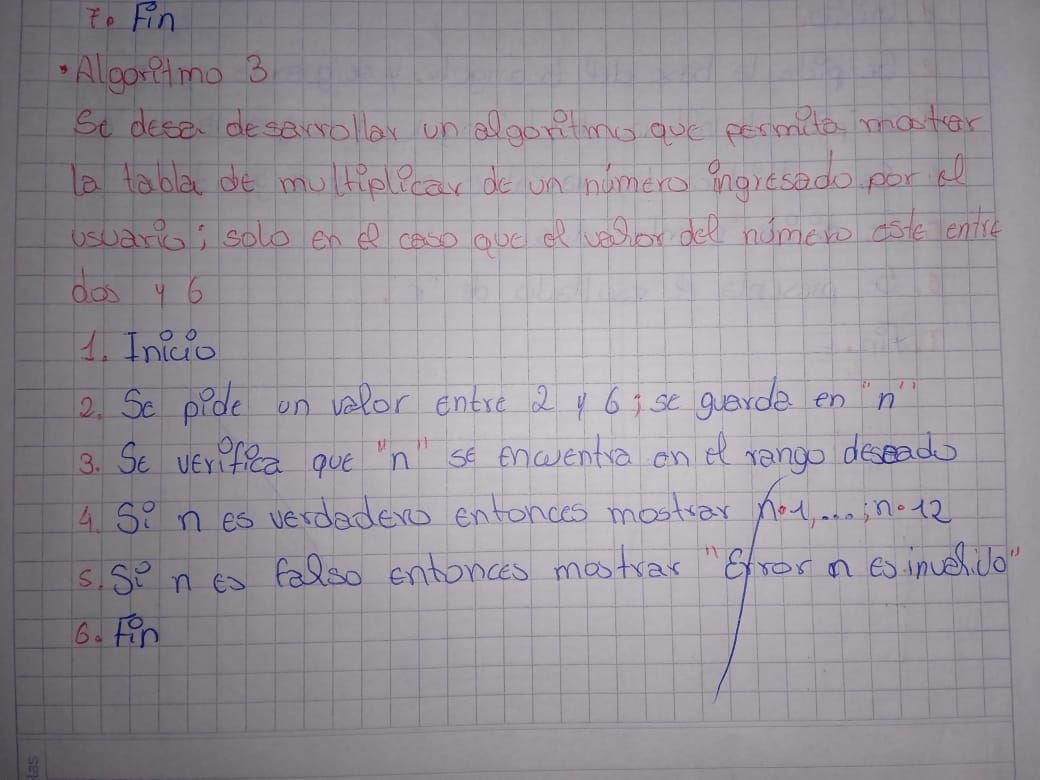 7. Fin
• Algoritmo 3
Se desea desarrollar un algoritmo que permita mostrar
la tabla de multiplicar de un número ingresado por el
usuario; solo en el caso que el valor del número este entre
dos y 6
1. Inicio
2. Se pide un valor entre 2 y 6; se guarda en "n"
3. Se verifica que "n" se encuentra en el rango deseado
4. Si n es verdadero entonces mostrar n•1,...;n•12
5. Si n es falso entonces mostrar "Error n es invalido"
6. Fin
las